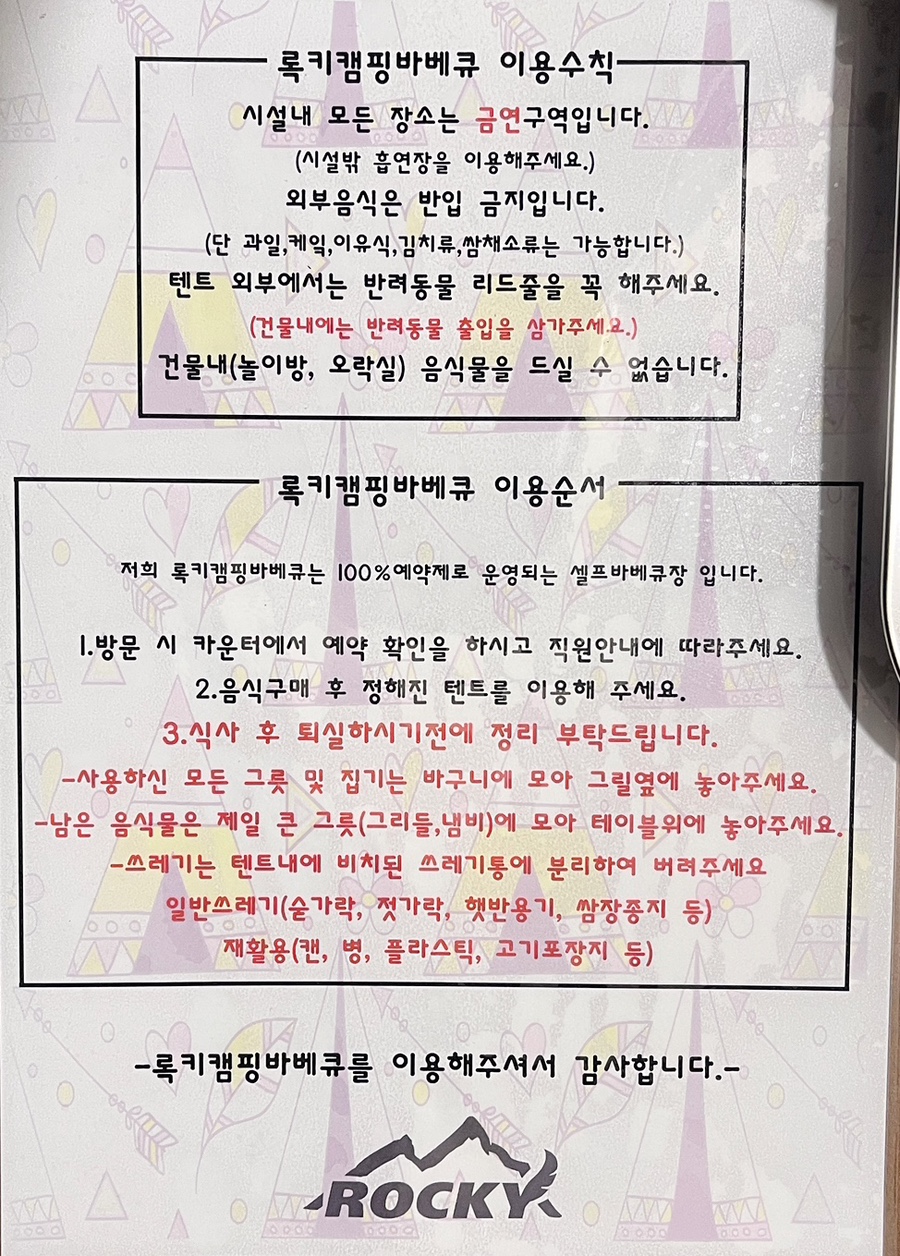 록키캠핑바베큐 이용수칙
시설내 모든 장소는 금연구역입니다.
(시설밖 흡연장을 이용해주세요.)
외부음식은 반입 금지입니다.
(단 과일,케잌,이유식,김치류,쌈채소류는 가능합니다.)
텐트 외부에서는 반려동물 리드줄을 꼭 해주세요.
(건물내에는 반려동물 출입을 삼가주세요.)
건물내(놀이방, 오락실) 음식물을 드실 수 없습니다.
록키캠핑바베큐 이용순서
저희 록키캠핑바베큐는 100%예약제로 운영되는 셀프바베큐장 입니다.
1.방문 시 카운터에서 예약 확인을 하시고 직원안내에 따라주세요.
2.음식구매 후 정해진 텐트를 이용해 주세요.
3.식사 후 퇴실하시기전에 정리 부탁드립니다.
-사용하신 모든 그릇 및 집기는 바구니에 모아 그릴옆에 놓아주세요.
-남은 음식물은 제일 큰 그릇(그리들,냄비)에 모아 테이블위에 놓아주세요.
-쓰레기는 텐트내에 비치된 쓰레기통에 분리하여 버려주세요
일반쓰레기(숟가락, 젓가락, 햇반용기, 쌈장종지 등)
재활용(캔, 병, 플라스틱, 고기포장지 등)
-록키캠핑바베큐를 이용해주셔서 감사합니다.-
ROCKY